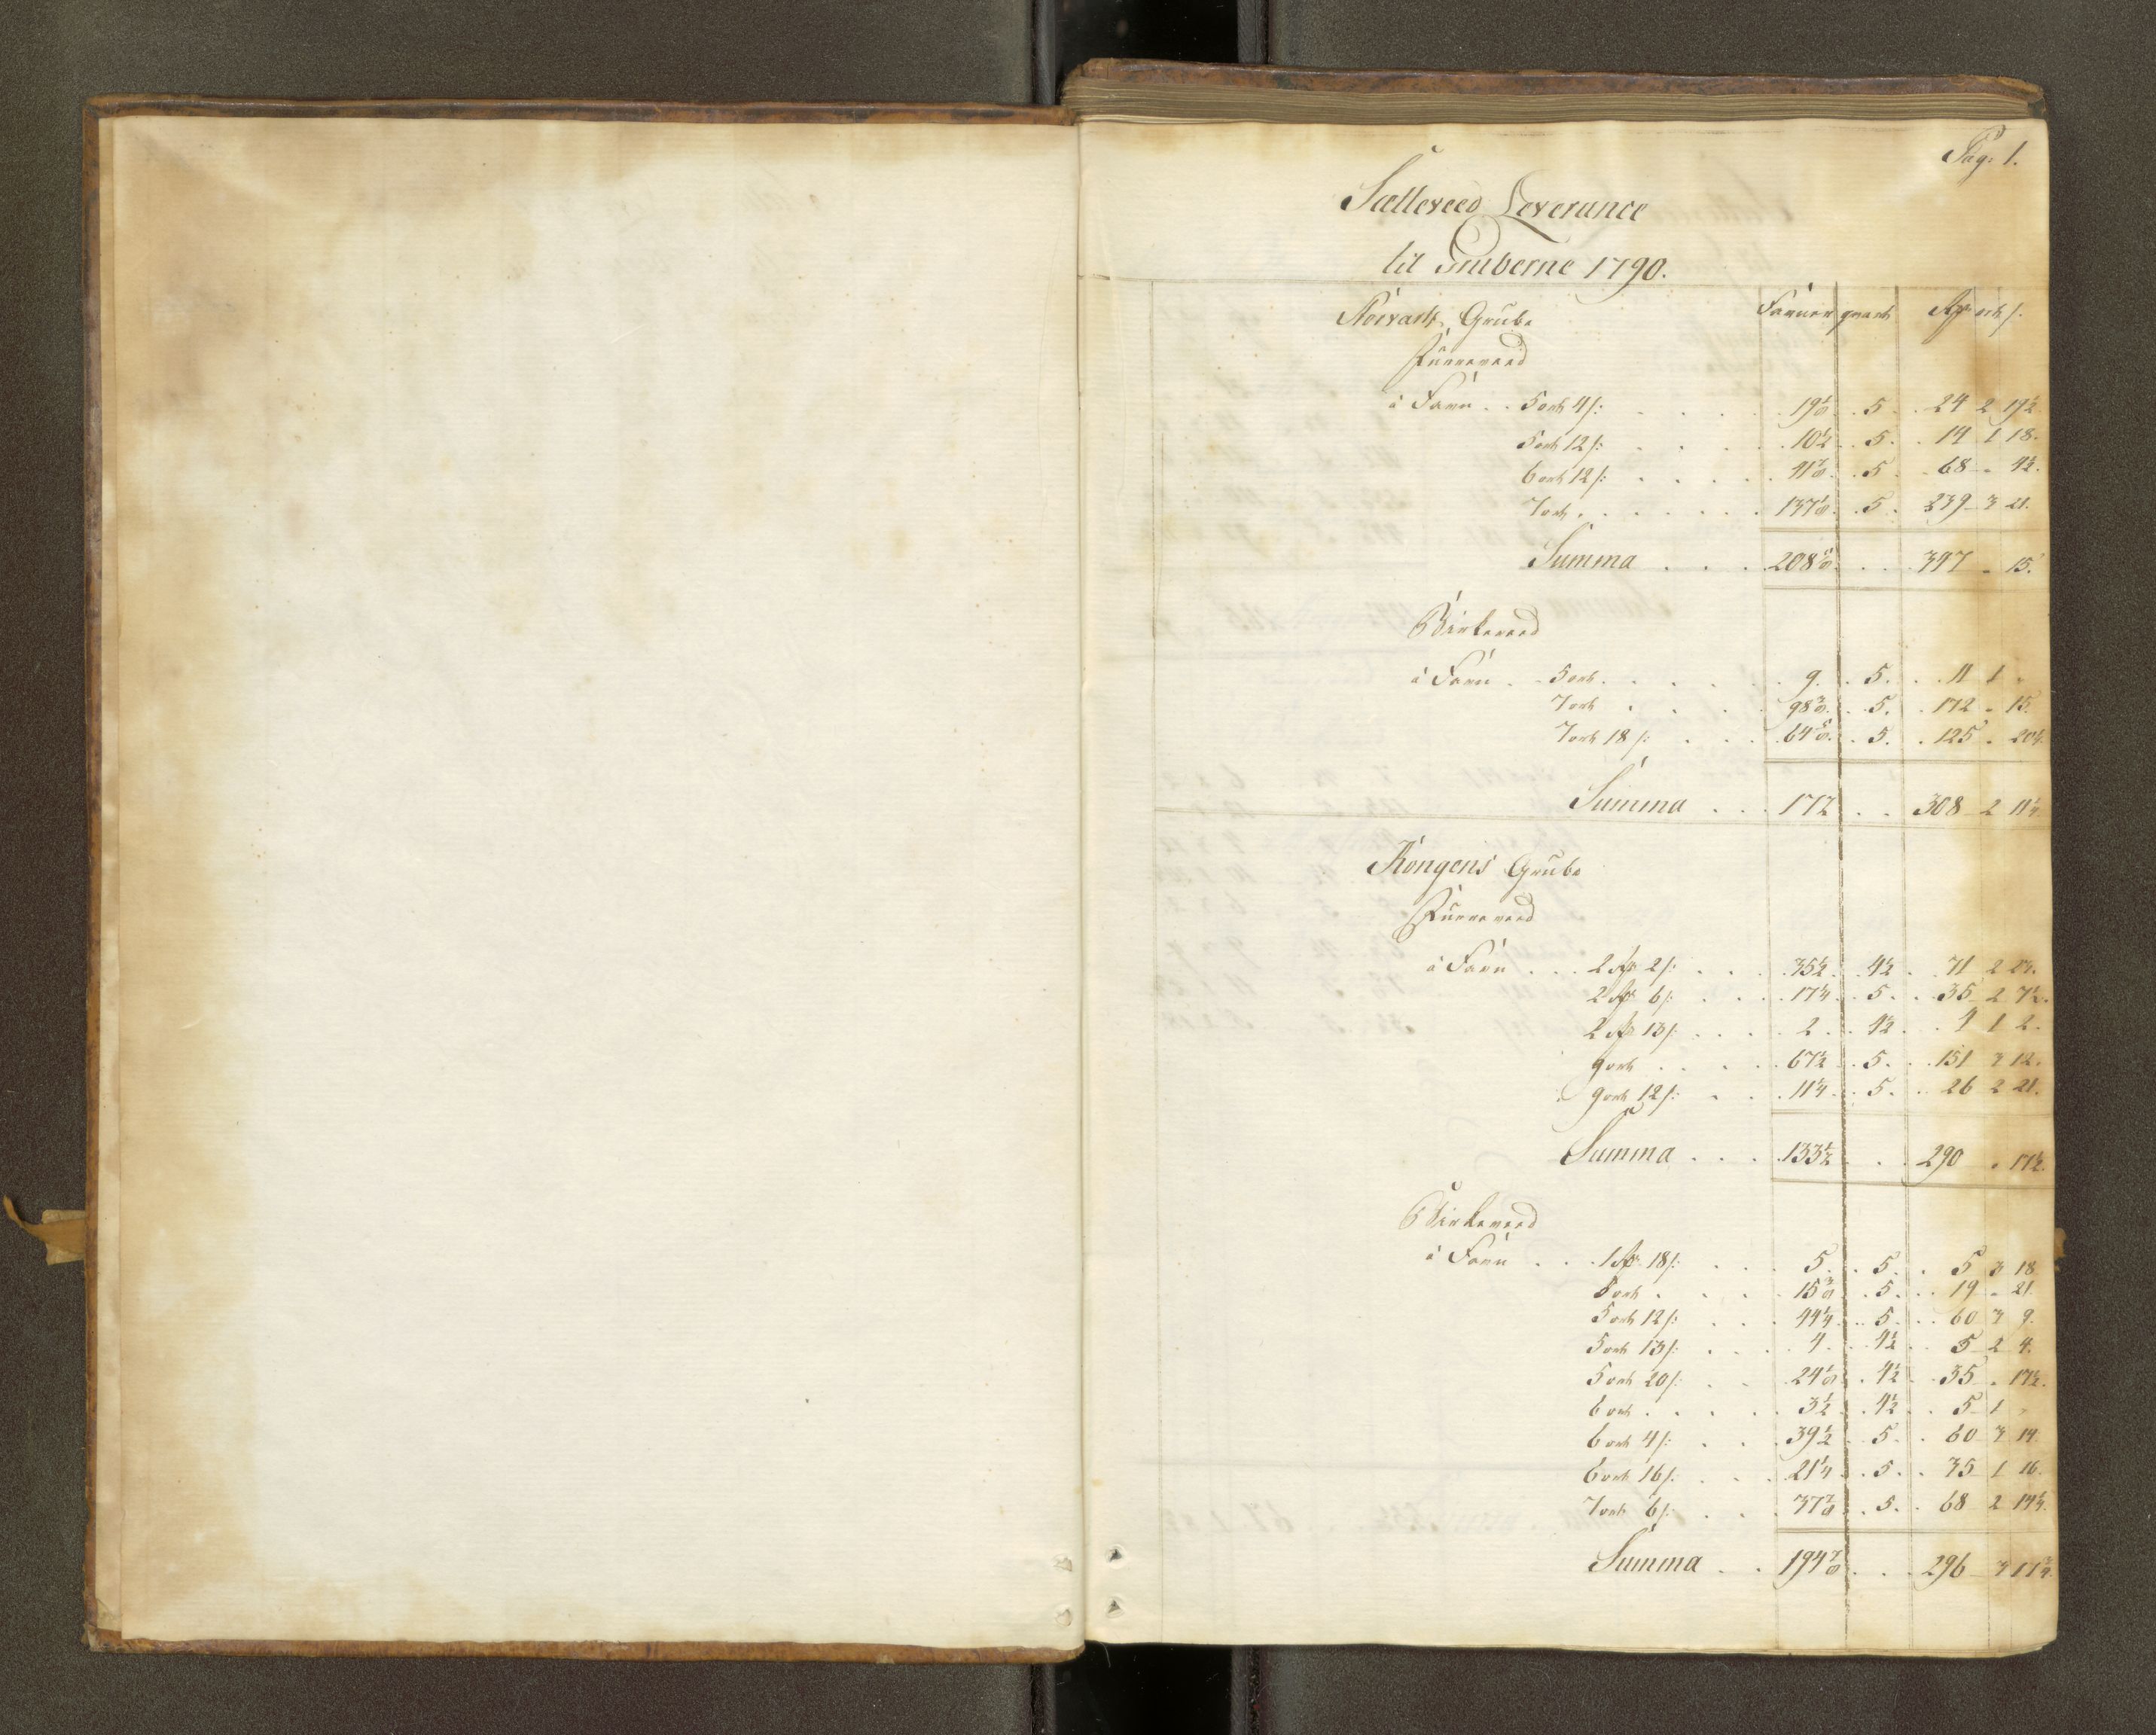 Pag: 1.
Sætteveed Leverance
til Gruberne 1790.
Grube Favner qvart Rdr ort s.
Furreveed
à Favn . . 5 ort 4 s: . . . 19 1/8 . 5 . . 24 2 19 1/2
5 ort 12 s: . . . 10 1/2 . . 5 . . 14 1 18.
6 ort 12 s: . . . 41 7/8 . . 5 . . 68 " 4 1/2.
7 ort . . . 137 1/8 . . 5 . 239 3 21.
Summa . . . 208 5/8 . . . 347 " 15.
Birkeveed
à Favn . . 5 ort . . . 9 . . 5 . . 11 1 "
7 ort . . . 98 3/8 . . 5 . . 172 " 15.
7 ort 18 s: . . . 64 5/8 . . 5 . . 125 " 20 1/4
Summa . . . 172 . . 308 2 11 1/4
Kongens Grube
Furreveed
à Favn . . . 2 Rdr 2 s: . . . 35 1/2 . . 4 1/2 . . 71 2 23.
2 Rdr 6 s: . . . 17 1/4 . . 5 . . 35 2 7 1/2.
2 Rdr 13 s: . . . 2 . . 4 1/2 . . 4 1 2.
9 ort . . . 67 1/2 . . 5 . . 151 3 12.
9 ort 12 s: . . . 11 1/4 . . 5 . . 26 2 21.
Summa . . . 133 1/2 . . . 290 " 17 1/2.
Birkeveed
à Favn . . . 1 Rdr 18 s: . . . 5 . . 5 . . 5 3 18
5 ort . . . 15 3/8 . 5 . . 19 " 21.
5 ort 12 s: . . . 44 1/4 . . 5 . . 60 3 9.
5 ort 13 s: . . . 4 . . 4 1/2 . . 5 2 4.
5 ort 20 s: . . . 24 1/8 . 4 1/2 . . 35 " 17 1/2.
6 ort . . . 3 1/2 . . 4 1/2 . . 5 1 "
6 ort 4 s: . . . 39 1/2 . . 5 . . 60 3 14.
6 ort 16 s: . . . 21 1/4 . . 5 . . 35 1 16
7 ort 6 s: . . . 37 7/8 . . 5 . . 68 2 14 1/4.
Summa . . 194 7/8 . . . 296 3 17 3/4.